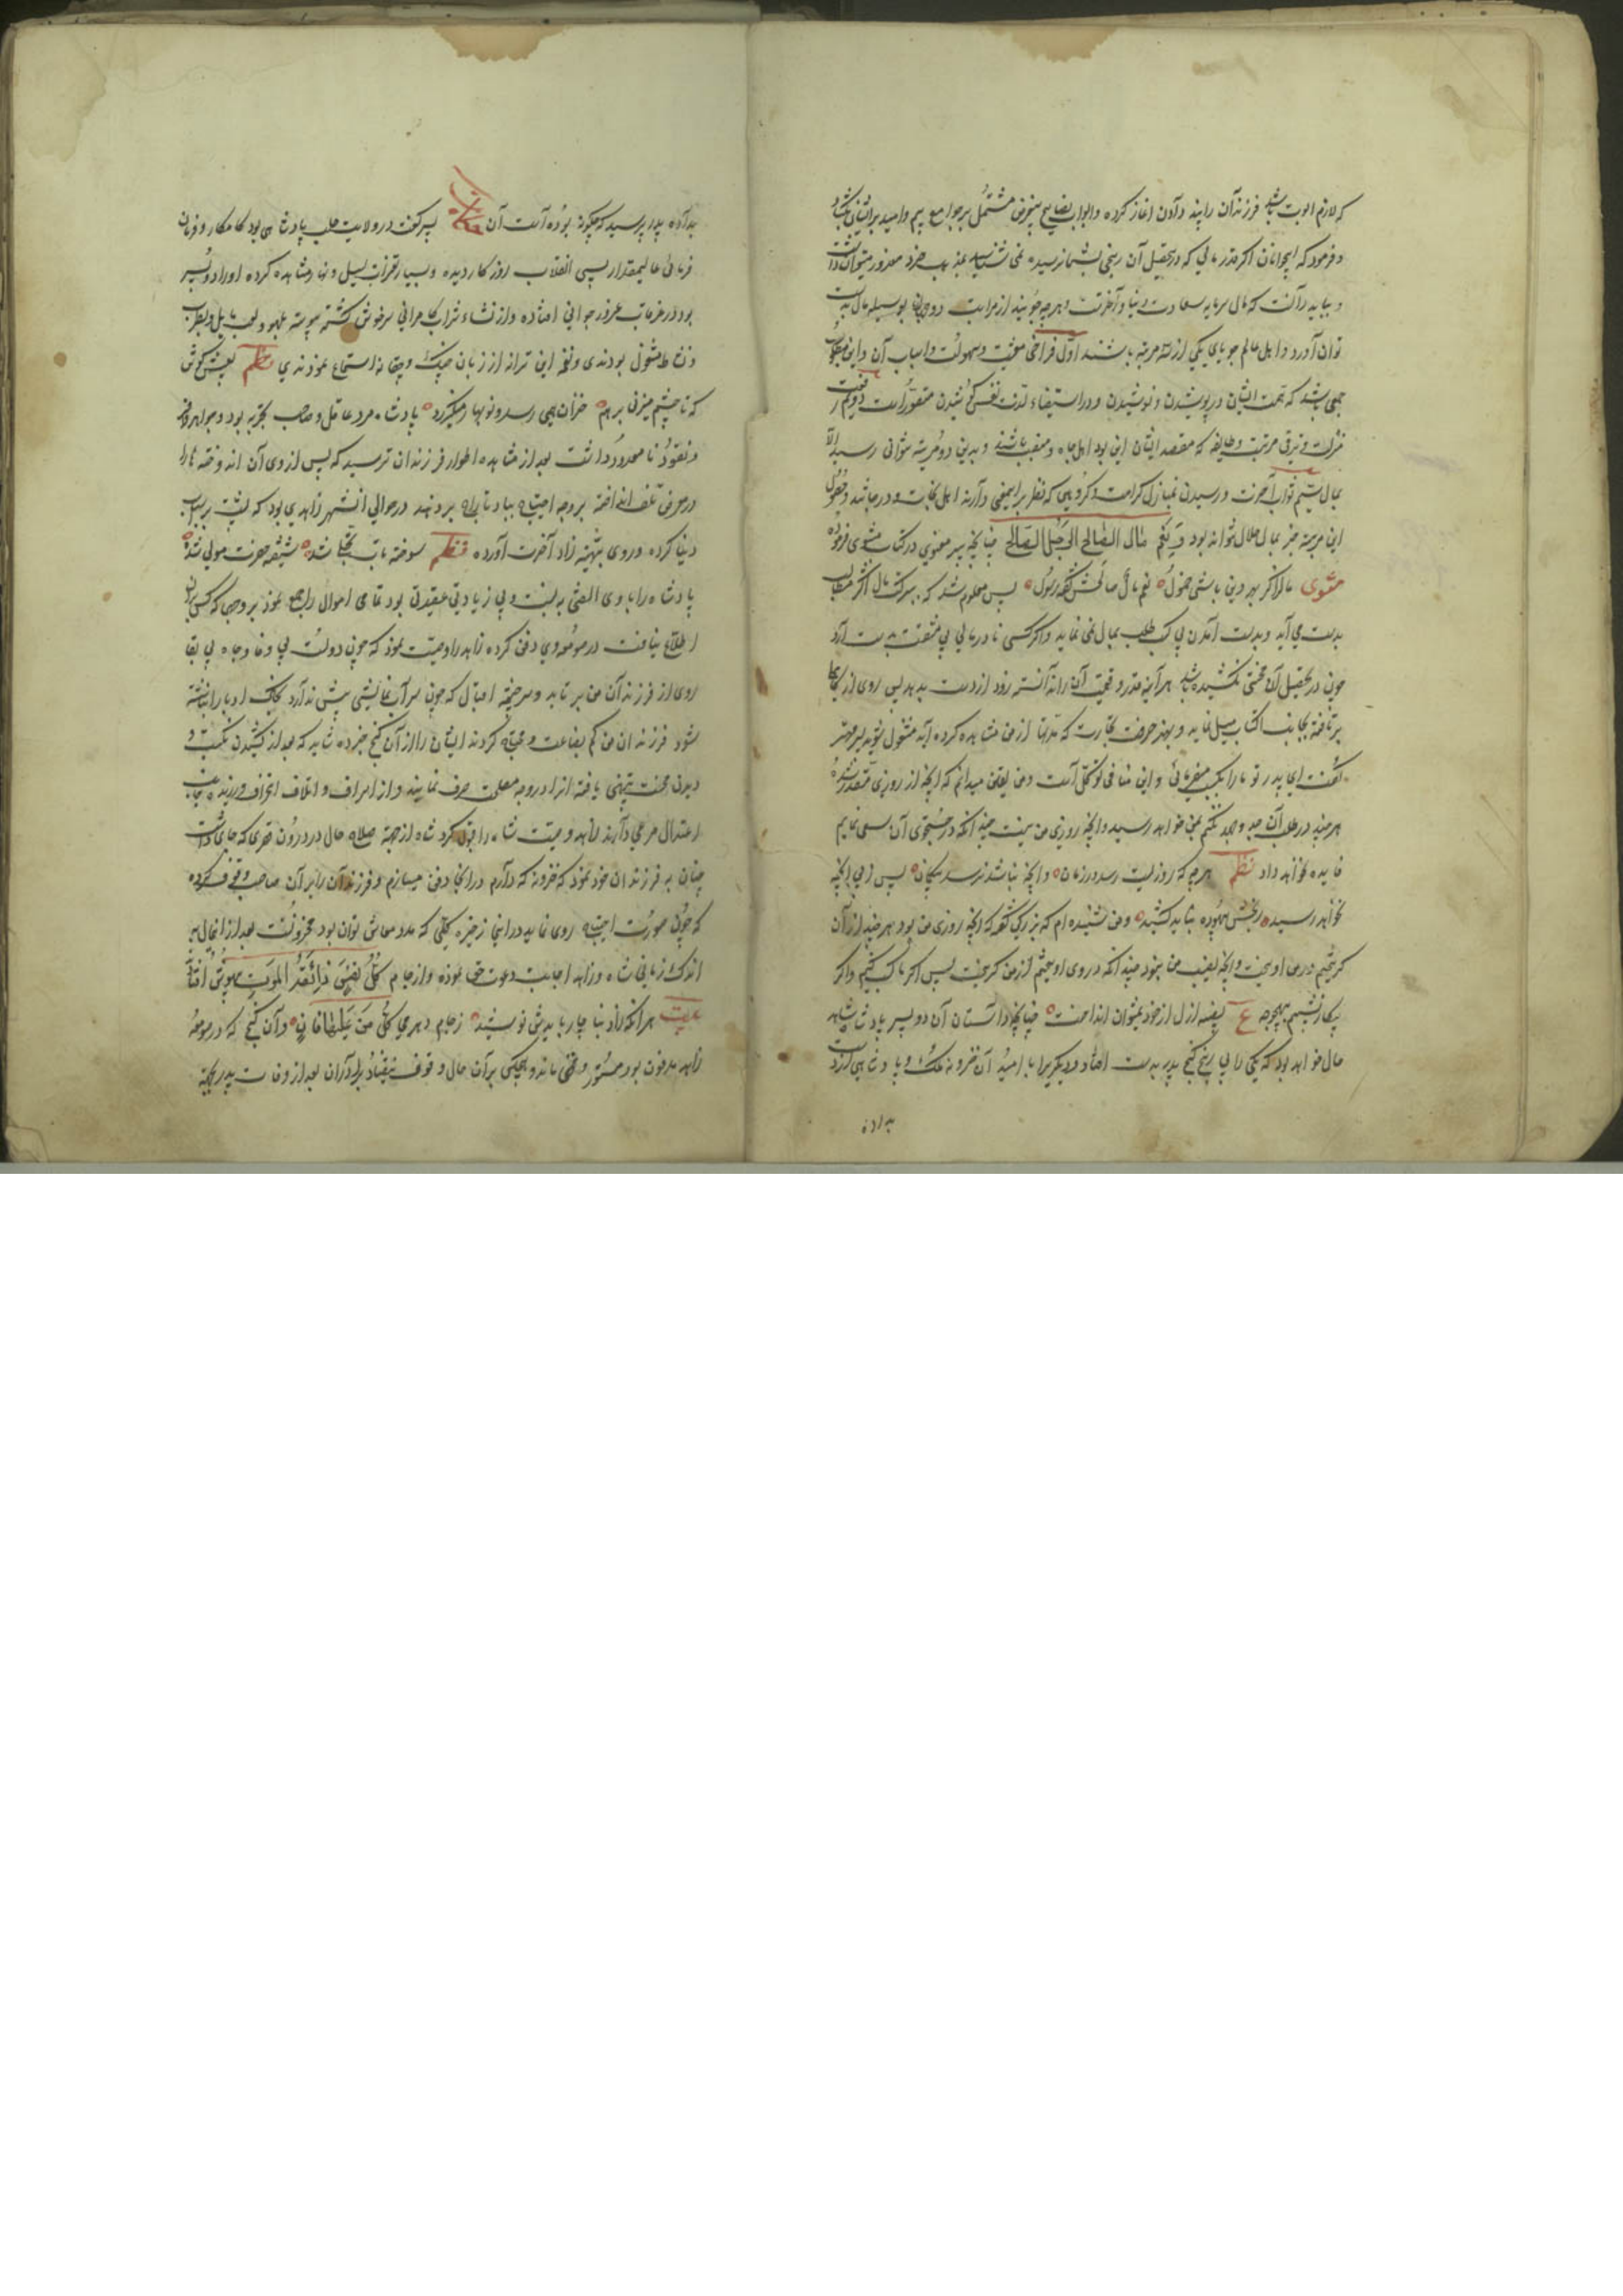 که لازم ابوت باشد فرزندان را پند دادن اغاز کرده وابواب نصایح بیغرض مشتمل بر جوامع بیم وامید بر ایشان بکشاد
وفرمود که ایجوانان اکر قدر مالی که در تحصیل آن رنجی بشما نرسیده نمی شناسید عند خرد معذور میتوان داشت
و بباید دانست که مال سرمایه سعادت دنیا وآخرتست وهرچه جویند از مراتب دوجهانی بوسیله مال بدست
توان آورد واهل عالم جویای یکی از سه مرتبه باشند اول فراخی معیشت وسهولت واسباب آن واین مطلوب
جمعی باشد که همت ایشان در پوشیدن ونوشیدن ودر استیفاء لذت نفس کوشیدن مقصورست دویم رفعت
منزلت وترقی مرتبت وطایفه که مقصد ایشان این بود اهل جاه ومنصب باشند وبدین دو مرتبه نتوانی رسید الا
بمال سیم ثواب آخرت ورسیدن بمنازل کرامت وکروهی که نظر بر اینمعنی دارند اهل نجات ودرجاتند وحصول
این مرتبه نیز بمال حلال تواند بود ونعم مال الصالح الی رجل الصالح چنانچه پیر معنوی در کتاب مثنوی فرموده
مثنوی مال اکر بهر دین باشی حمول نعم مال صالحش کفت رسول پس معلوم شد که ببرکت مال اکثر مطالب
بدست می آید وبدست آمدن بی کسب طلب بمال نمی نماید واکر کسی نادرا مالی بی مشقت بدست آرد
چون در تحصیل آن محنتی نکشیده باشد هر آینه قدر وقیمت آن را ندانسته زود از دست بدهد پس روی از کاهلی
بر تافته بجانب اکتساب میل نمایید وبهمین حرفت تجارت که مدتها از من مشاهده کرده اید مشغول شوید پسر مهتر
کفت ای پدر تو ما را بکسب میفرمایی واین منافی توکلست ومن یقین میدانم که آنچه از روزی مقدر شده
هرچند در طلب آن جد وجهد نکنم بمن خواهد رسید وآنچه روزی من نیست چندانکه در جستجوی آن سعی نمایم
فایده نخواهد داد نظم هرچه که روزیست رسد در زمان وآنچه نباشد نرسد بیکمان پس ز پی آنچه
نخواهد رسید رنجش بیهوده نباید کشید ومن شنیده ام که بزرکی کفته که آنچه روزی من بود هرچند از آن
کریختم در من آویخت وآنچه نصیب من نبود چندانکه در وی آویختم از من کریخت پس اکر ما کسب کنیم واکر
بیکار نشینیم بهیچوجه ع نصیبه ازل از خود نمیتوان انداخت چنانچه داستان آن دو پسر پادشاه شاهد
حال خواهد بود که یکی را بی رنج کنج پدر بدست افتاد ودیکریرا با امید آن خزونه ملک وپادشاهی از دست
بداده
بداده پدر پرسید که چکونه بوده است آن حکایت پسر کفت در ولایت حلب پادشاهی بود کامکار وفرمان
فرمائی عالیمقدار بسی انقلاب روزکار دیده وبسیار تغیرات لیل ونهار مشاهده کرده او را دو پسر
بود در غرقاب غرور جوانی افتاده واز نشاء شراب کامرانی سرخوش کشته پیوسته بلهو ولعب مایل وبطرب
ونشاط مشغول بودندی ونغمه این ترانه از زبان چنک وچغانه استماع نمودندی نظم بعیش کوش
که تا چشم میزنی بر هم خزان همی رسد ونوبهار میکذرد پادشاه مرد عاقل وصاحب تجربه بود وجواهر وافر
ونقود نامعدود داشت بعد از مشاهده اطوار فرزندان ترسید که پس از وی آن اندوخته ها را
در معرض تلف انداخته بر وجه احتیاج بباد تاراج بر دهند در حوالی آنشهر زاهدی بود که پشت بر اسباب
دنیا کرده وروی بتهیه زاد آخرت آورده نظم سوخته تاب تجلی شده شیفته حضرت مولی شده
پادشاه را با وی الفتی بنسبت وبی زیادتی عقیدتی بود تمامی اموال را جمع نموده بر وجهی که کسی بر آن
اطلاع نیافت در صومعه وی دفن کرده زاهد را وصیت نمود که چون دولت بی وفا وجاه بی بقا
روی از فرزندان من بر تابد وسرچشمه اقبال که چون سراب نمایشی بیش ندارد بخاک ادبار انباشته
شود فرزندان من کم بضاعت ومحتاج کردند ایشان را از آن کنج خبر ده شاید که بعد از کشیدن نکبت و
دیدن محنت تنبیهی یافته آنرا در وجه مصلحت صرف نمایند واز اسراف واتلاف انحراف ورزیده جانب
اعتدال مرعی دارند زاهد وصیت شاه را قبول کرد شاه از جهة صلاح حال در درون قصری که جای داشت
چنان به فرزندان خود نمود که خزونه که دارم در اینجا دفن میسازم وفرزندان را بر آن صاحب وقوف کرده
که چون صورت احتیاج روی نماید در اینجا ذخیره کلی که مدد معاش توان بود مخزونست بعد از اینحال بر
اندک زمانی شاه وزاهد اجابت دعوت حق نموده واز جام کل نفس ذائقة الموت بیهوش افتادند
بیت هر آنکه زاد بناچار بایدش نوشید ز جام دهر می کل من علیها فان وآن کنج که در صومعه
زاهد مدفون بود مستور ومخفی مانده وهیچکس بر آن حال وقوف نیفتاد برادران بعد از وفات پدر بجهة